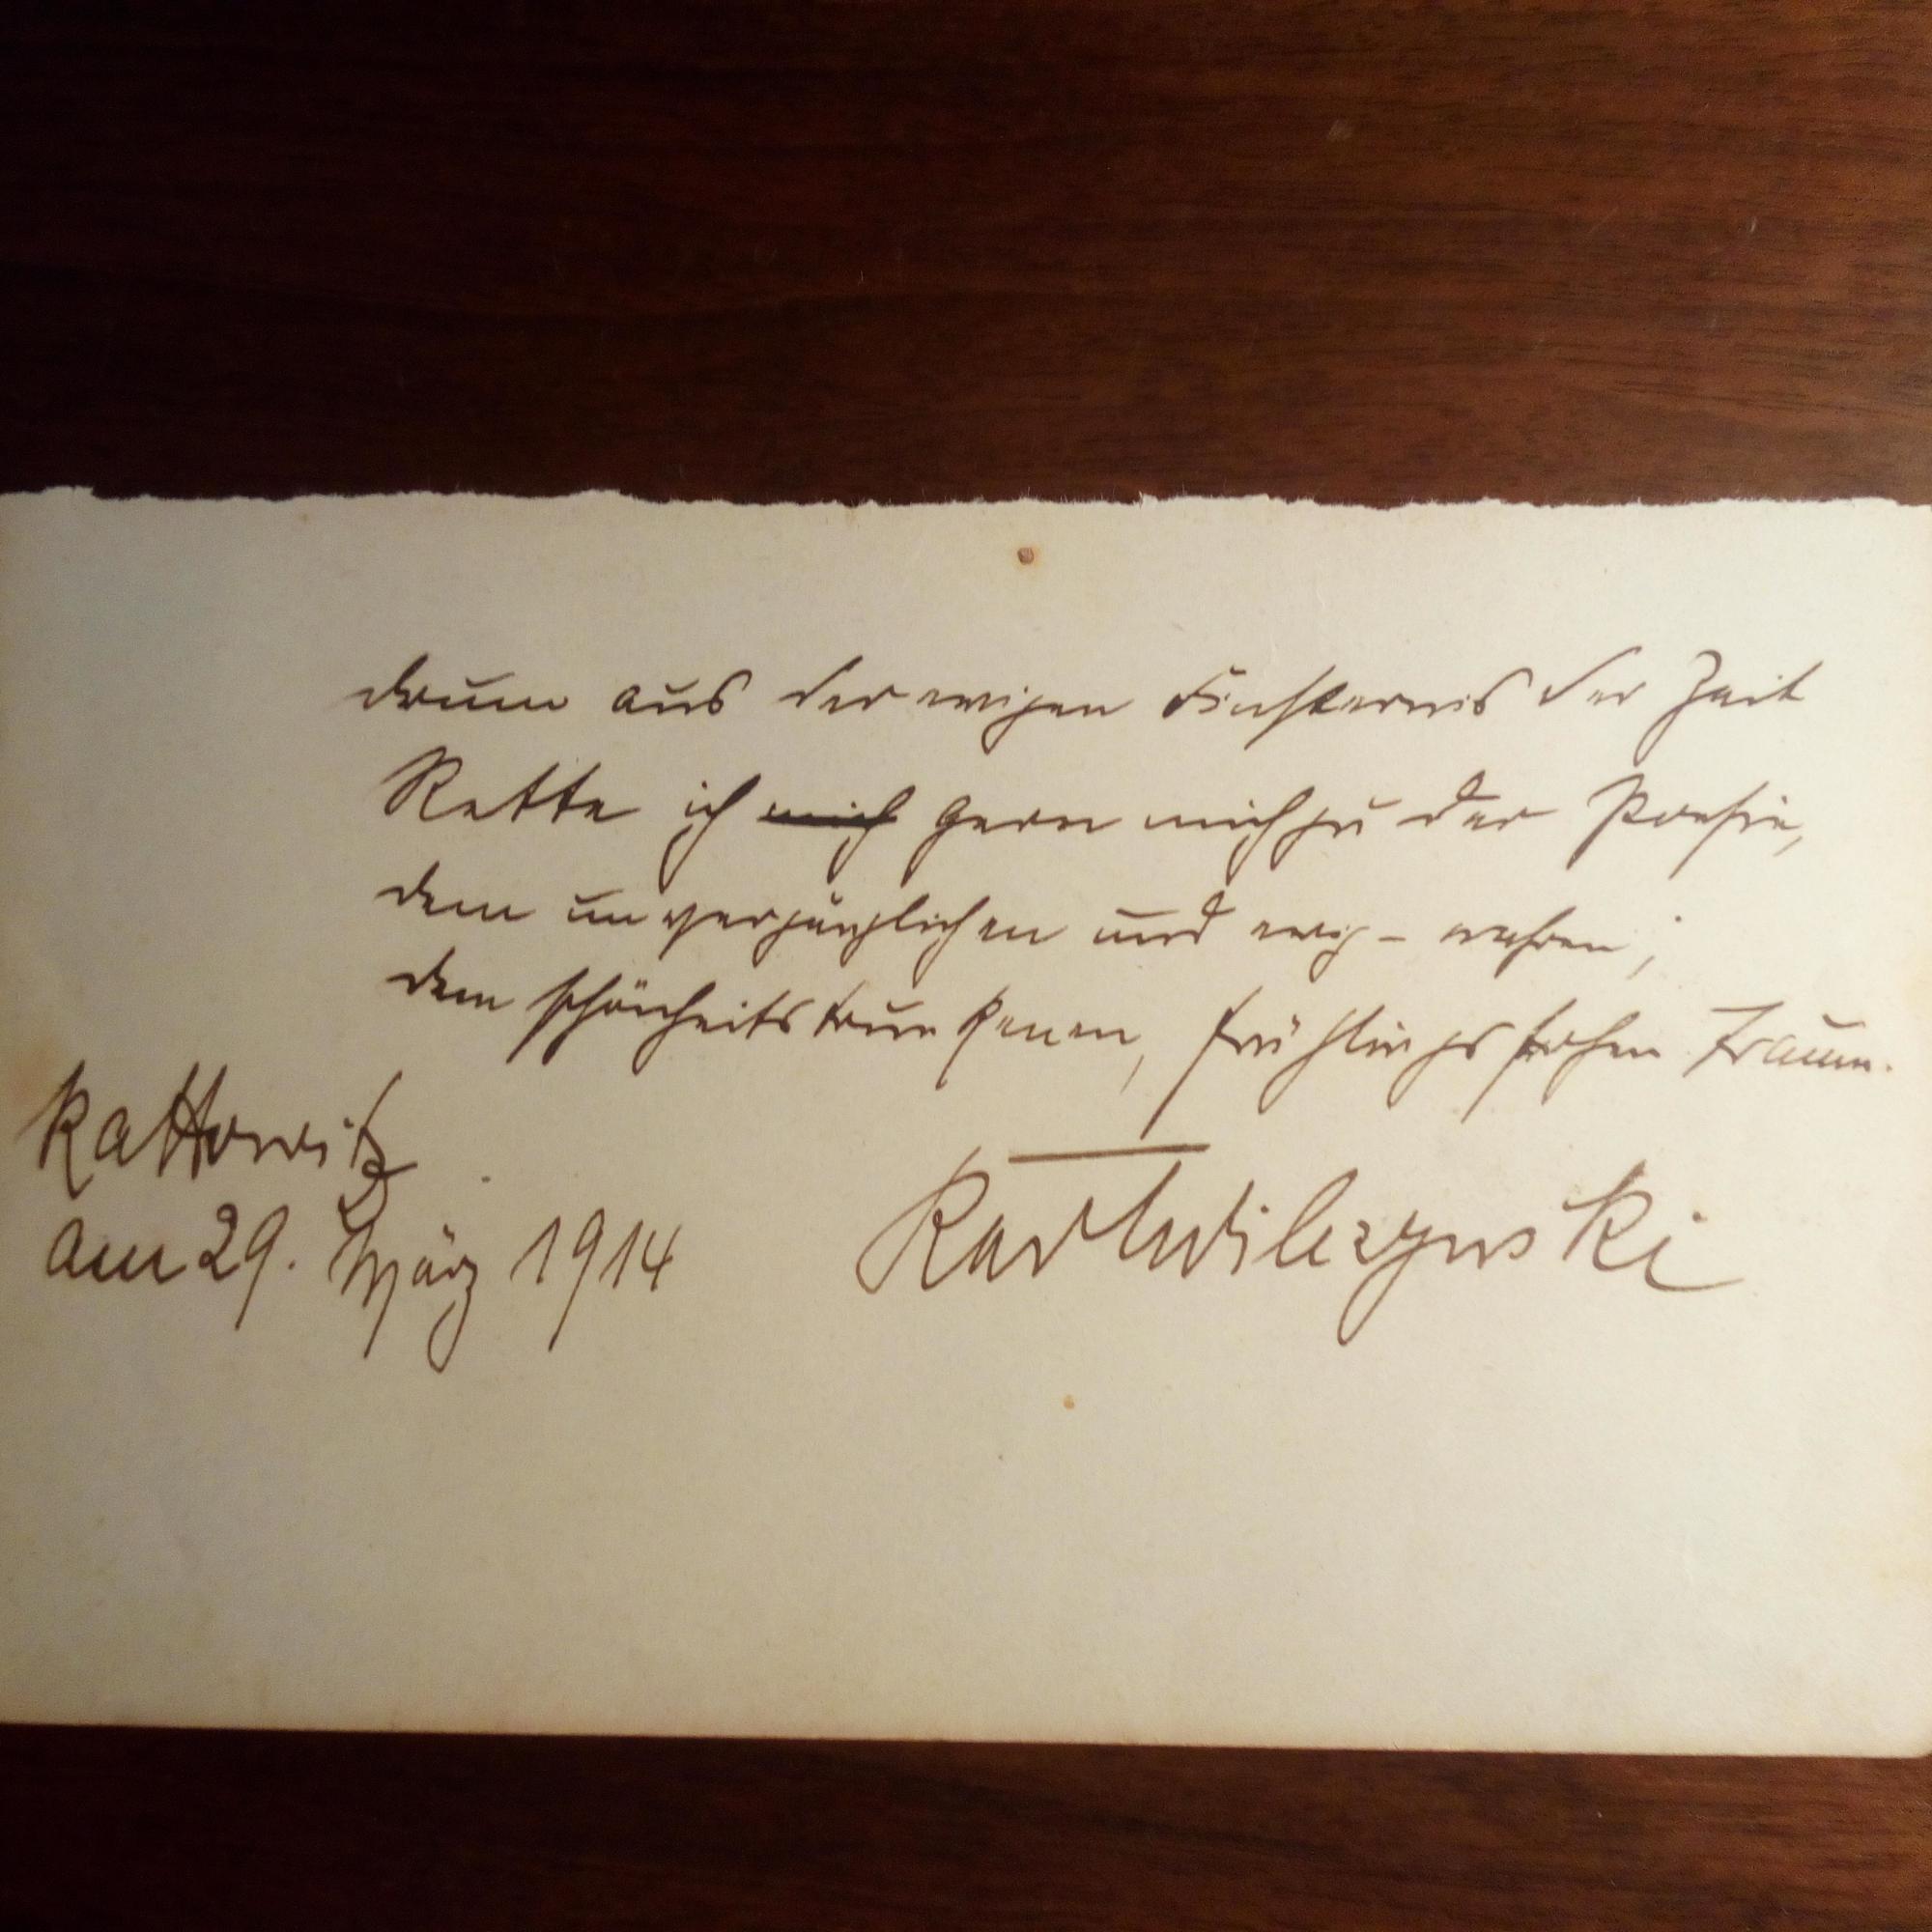 drum aus der ewigen Finsternis der Zeit
Rette ich mich gern mich zu der Poesie,
dem unvergänglichen und ewig-wahren;
dem schönheitstrunkenen, frühlingsfrohen Traum.
Kattowitz
am 29. März 1914
Karl Wilczynski